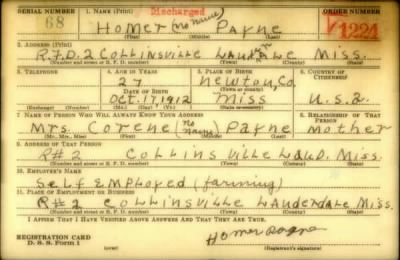 SERIAL NUMBER 1. NAME (Print) Discharged ORDER NUMBER
68 Homer (no name) Payne V1224
(First) (Middle) (Last)
2. ADDRESS (Print)
R.F.D. 2 Collinsville Lauderdale Miss.
(Number and street or R. F. D. number) (Town) (County) (State)
3. TELEPHONE 4. AGE IN YEARS 5. PLACE OF BIRTH 6. COUNTRY OF CITIZENSHIP
27 Newton, Co.
DATE OF BIRTH (Town or county)
Oct. 17, 1912 Miss U.S.A.
(Exchange) (Number) (Mo.) (Day) (Yr.) (State or country)
7. NAME OF PERSON WHO WILL ALWAYS KNOW YOUR ADDRESS 8. RELATIONSHIP OF THAT PERSON
Mrs. Corene (no name) Payne mother
(Mr., Mrs., Miss) (First) (Middle) (Last)
9. ADDRESS OF THAT PERSON
R#2 Collinsville Laud. Miss.
(Number and street or R. F. D. number) (Town) (County) (State)
10. EMPLOYER'S NAME
Self Employed (farming)
11. PLACE OF EMPLOYMENT OR BUSINESS
R#2 Collinsville Lauderdale Miss.
(Number and street or R. F. D. number) (Town) (County) (State)
I AFFIRM THAT I HAVE VERIFIED ABOVE ANSWERS AND THAT THEY ARE TRUE.
REGISTRATION CARD Homer Payne
D. S. S. Form 1 (Registrant's signature)